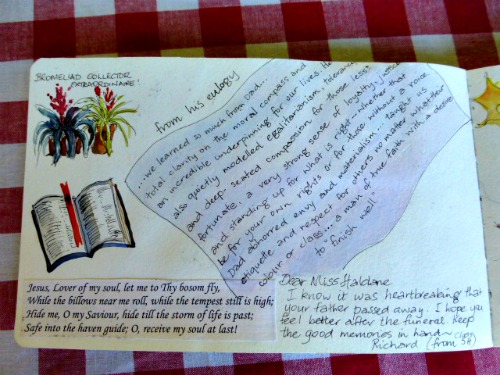 BROMELIAD COLLECTOR
EXTRAORDINAIRE'
from his eulogy
...we learned so much from Dad...
total clarity on the moral compass and
an incredible underpinning for our lives. He
also quietly modelled egalitarianism, tolerance
and deep seated compassion for those less
fortunate, a very strong sense of loyalty, justice
and standing up for what is right - whether that
be for your own rights or for those without a voice
Dad abhorred envy and materialism, taught us
etiquette and respect for others no matter what their
colour or class... a man of true faith with a desire
to finish well.
Jesus, Lover of my soul, let me to Thy bosom fly,
While the billows near me roll, while the tempest still is high;
Hide me, O my Saviour, hide till the storm of life is past;
Safe into the haven guide; O, receive my soul at last!
Dear Miss Haldane
I know it was heartbreaking that
your father passed away. I hope you
feel better after the funeral. Keep
the good memories in hand~
Richard (from 5B)